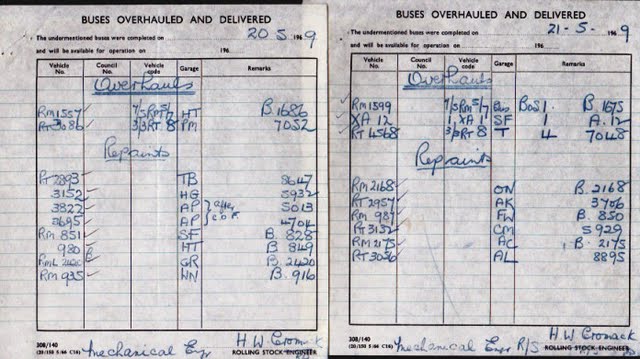 BUSES OVERHAULED AND DELIVERED
The undermentioned buses were completed on 20 5 1969
and will be available for operation on 196
Vehicle No. Council No. Vehicle code Garage Remarks
Overhauls
RM1557 7/5RM5/7 HT B 1686
RT3086 3/3RT 8 TM 7032
Repaints
RT2893 TB 8647
3152 HG 5932
3822 AP 5013
3695 AP 4704
RM 851 SF B. 825
980 HT B 849
RML 2420 GR B. 2420
RM 935 WN B. 916
308/140
Mechanical Eng H W Cromack
ROLLING STOCK ENGINEER
BUSES OVERHAULED AND DELIVERED
The undermentioned buses were completed on 21-5-1969
and will be available for operation on 196
Vehicle No. Council No. Vehicle code Garage Remarks
Overhauls
RM1599 7/5RM5/7 Bus Box 1 B 1675
XA 12 1 XA 1 SF 1 A.12
RT 4568 3/3RT 8 T 4 7048
Repaints
RM 2168 ON B. 2168
RT 2957 AK 3706
RM 987 FW B. 850
RT 3132 CM 5929
RM 2175 AC B. 2175
RT 3056 AL 8895
308/140
Mechanical Engr R/S H W Cromack
ROLLING STOCK ENGINEER